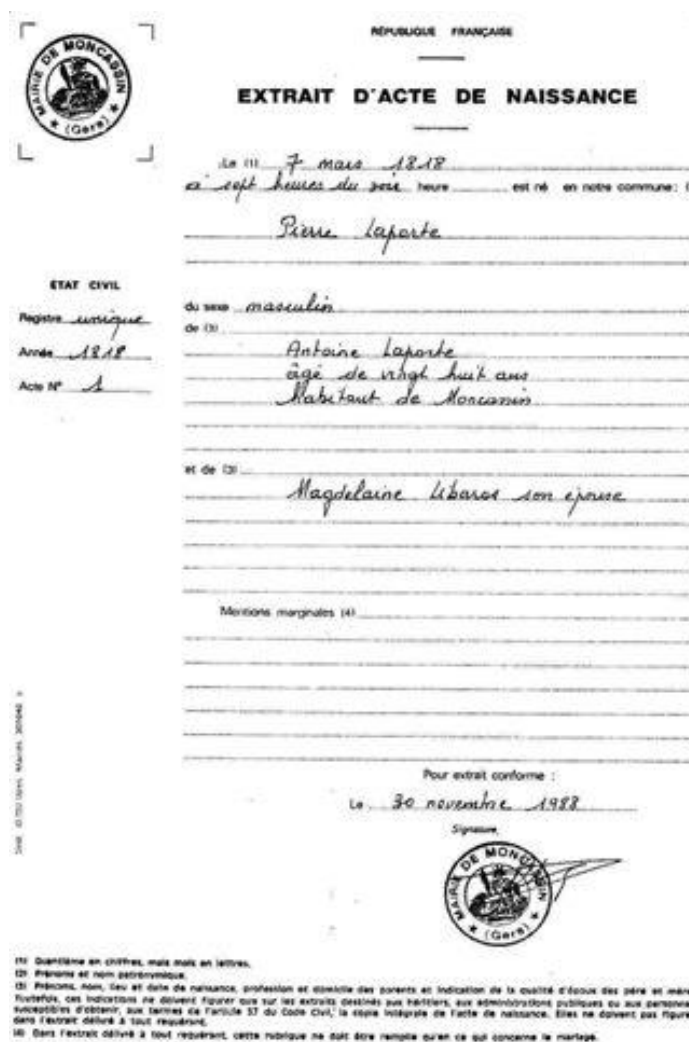 MAIRIE DE MONCASSIN
(Gers)
RÉPUBLIQUE FRANÇAISE
EXTRAIT D'ACTE DE NAISSANCE
Le (1) 7 mars 1818
à sept heures du soir heure est né en notre commune: (
Pierre Laporte
ETAT CIVIL
Registre unique
Année 1818
Acte N° 1
du sexe masculin
de (3)
Antoine Laporte
âgé de vingt huit ans
Habitant de Moncassin
et de (3)
Magdelaine son épouse
Mentions marginales (4)
Pour extrait conforme :
Le 30 novembre 1988
Signature,
MAIRIE DE MONCASSIN
(Gers)
(1) Quantième en chiffres, mais mois en lettres.
(2) Prénoms et nom patronymique.
(3) Prénoms, nom, lieu et date de naissance, profession et domicile des parents et indication de la qualité d'époux des père et mère
Toutefois, ces indications ne doivent figurer que sur les extraits destinés aux héritiers, aux administrations publiques ou aux personnes
susceptibles d'obtenir, aux termes de l'article 57 du Code Civil, la copie intégrale de l'acte de naissance. Elles ne doivent pas figure
dans l'extrait délivré à tout requérant.
(4) Dans l'extrait délivré à tout requérant, cette rubrique ne doit être remplie qu'en ce qui concerne le mariage.